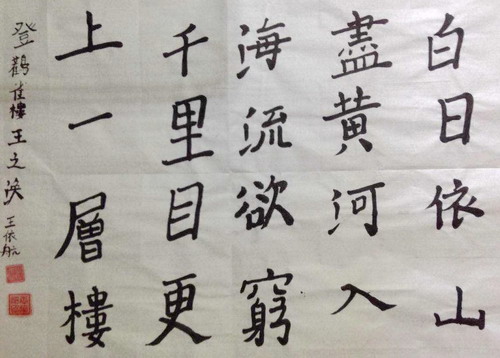 白日依山
盡黄河入
海流欲窮
千里目更
上一層樓
登鹳雀樓王之涣
王依航